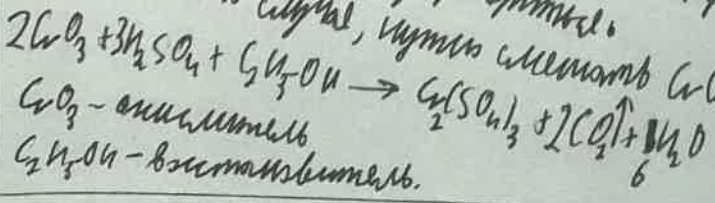 случае, нужно смешать Cr
2CrO₃ + 3H₂SO₄ + C₂H₅OH → Cr₂(SO₄)₃ + 2CO₂↑ + 6H₂O
CrO₃ - окислитель
C₂H₅OH - восстановитель.